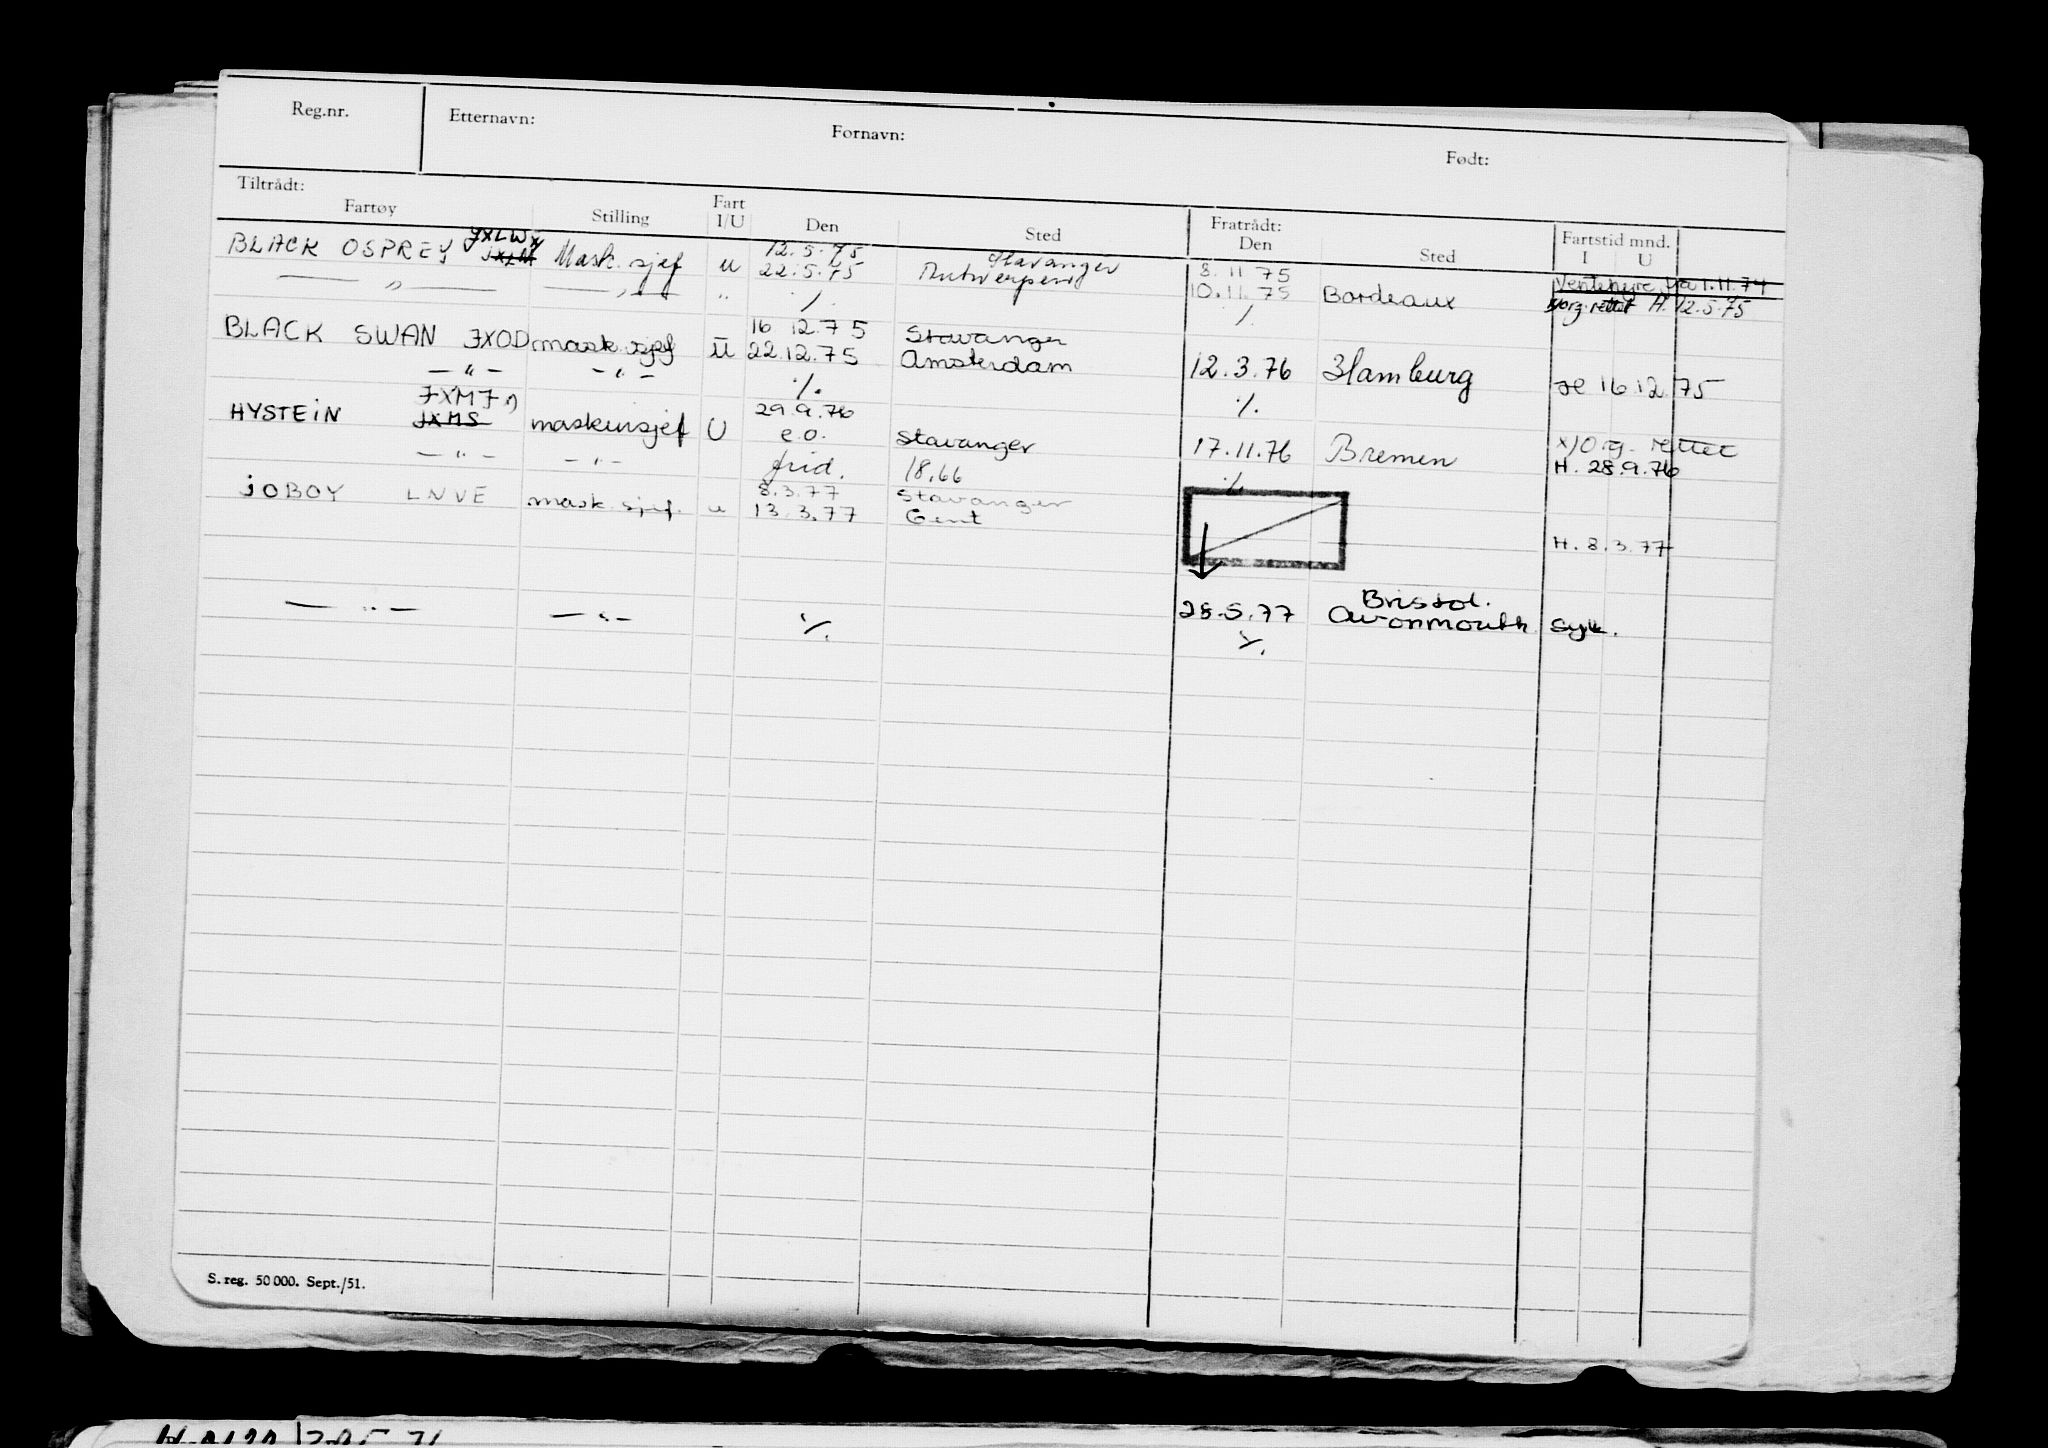 Reg.nr. Etternavn: Fornavn: Født:
Tiltrådt: Fratrådt: Fartstid mnd.
Fartøy Stilling Fart I/U Den Sted Den Sted I U
BLACK OSPREY JXLW x) Mask. sjef u 12.5.75 Stavanger 8.11.75 Ventehyre fra 1.11.74
22.5.75 Antwerpen 10.11.75 Bordeaux x) org. rettet H. 12.5.75
— " — — " — " ./. ./.
BLACK SWAN JXOD mask. sjef U 16.12.75 Stavanger
22.12.75 Amsterdam 12.3.76 Hamburg H 16.12.75
— " — — " — ./. ./.
JXMJ x)
HYSTEIN JXMS maskinsjef U 29.9.76
e.o. Stavanger 17.11.76 Bremen x) Org. rettet
— " — — " — frid. 18,66 ./. H. 28.9.76
JOBOY LNVE mask. sjef. u 8.3.77 Stavanger
13.3.77 Gent
H. 8.3.77
Bristol.
— " — — " — ./. 28.5.77 Avonmouth syk.
./.
S. reg. 50 000. Sept./51.